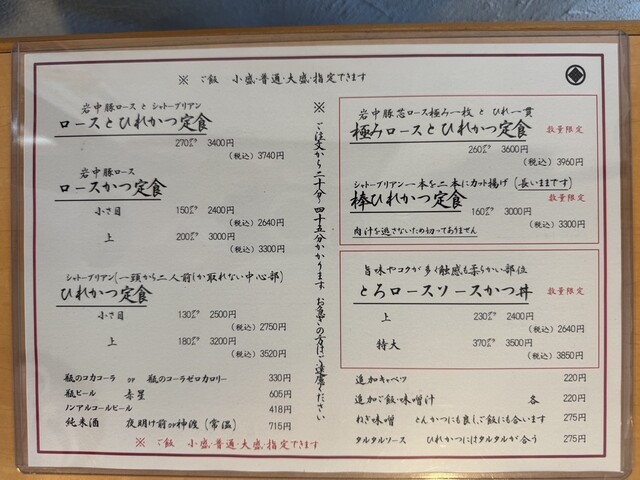 ※ ご飯 小盛・普通・大盛・指定できます
岩中豚ロース と シャトーブリアン
ロースとひれかつ定食
270㌘ 3400円
(税込) 3740円
岩中豚ロース
ロースかつ定食
小さ目 150㌘ 2400円
(税込) 2640円
上 200㌘ 3000円
(税込) 3300円
シャトーブリアン(一頭から二人前しか取れない中心部)
ひれかつ定食
小さ目 130㌘ 2500円
(税込) 2750円
上 180㌘ 3200円
(税込) 3520円
瓶のコカコーラ or 瓶のコーラゼロカロリー 330円
瓶ビール 赤星 605円
ノンアルコールビール 418円
純米酒 夜明け前or神渡(常温) 715円
※ ご飯 小盛・普通・大盛・指定できます
※ ご注文から二十分~四十五分かかります お急ぎの方はご遠慮ください
岩中豚芯ロース極み一枚 と ひれ一貫
極みロースとひれかつ定食 数量限定
260㌘ 3600円
(税込) 3960円
シャトーブリアン一本を二本にカット揚げ(長いままです)
棒ひれかつ定食 160㌘ 3000円 数量限定
(税込) 3300円
肉汁を逃さないため切ってありません
旨味やコクが多く触感も柔らかい部位
とろロースソースかつ丼 数量限定
上 230㌘ 2400円
(税込) 2640円
特大 370㌘ 3500円
(税込) 3850円
追加キャベツ 220円
追加ご飯・味噌汁 各 220円
ねぎ味噌 とんかつにも良し、ご飯にも合います 275円
タルタルソース ひれかつにはタルタルが合う 275円